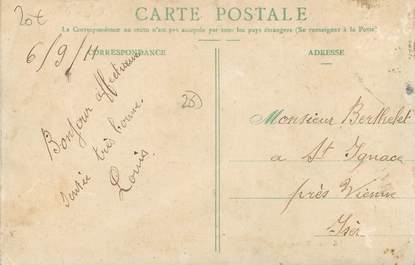 20t
CARTE POSTALE
La Correspondance au recto n'est pas acceptée par tous les pays étrangers (Se renseigner à la Poste)
CORRESPONDANCE
ADRESSE
6/9/11
Bonjour affectueux
santée très bonne.
Louis
20
Monsieur Berthelet
a St Ignace
près Vienne
Isèr